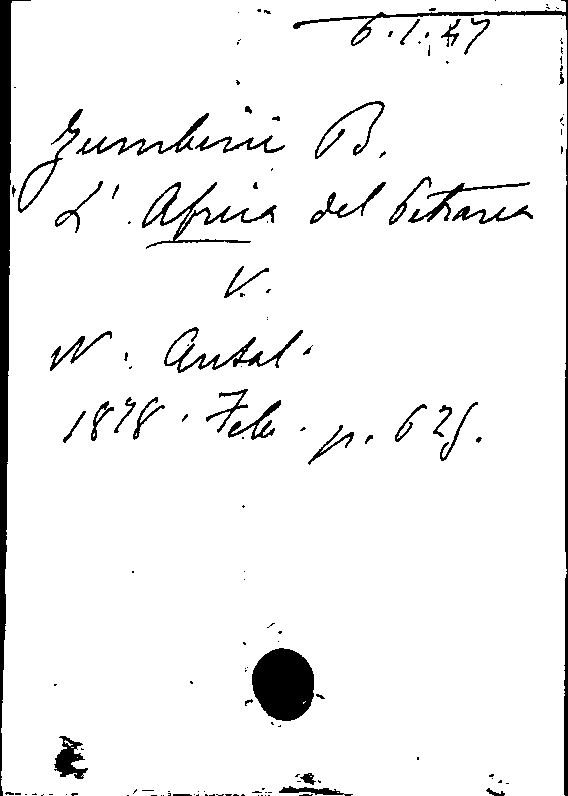 6.1.47
Zumbini B.
L' Africa del Petrarca
V.
N. Antol.
1878. Feb. p. 625.